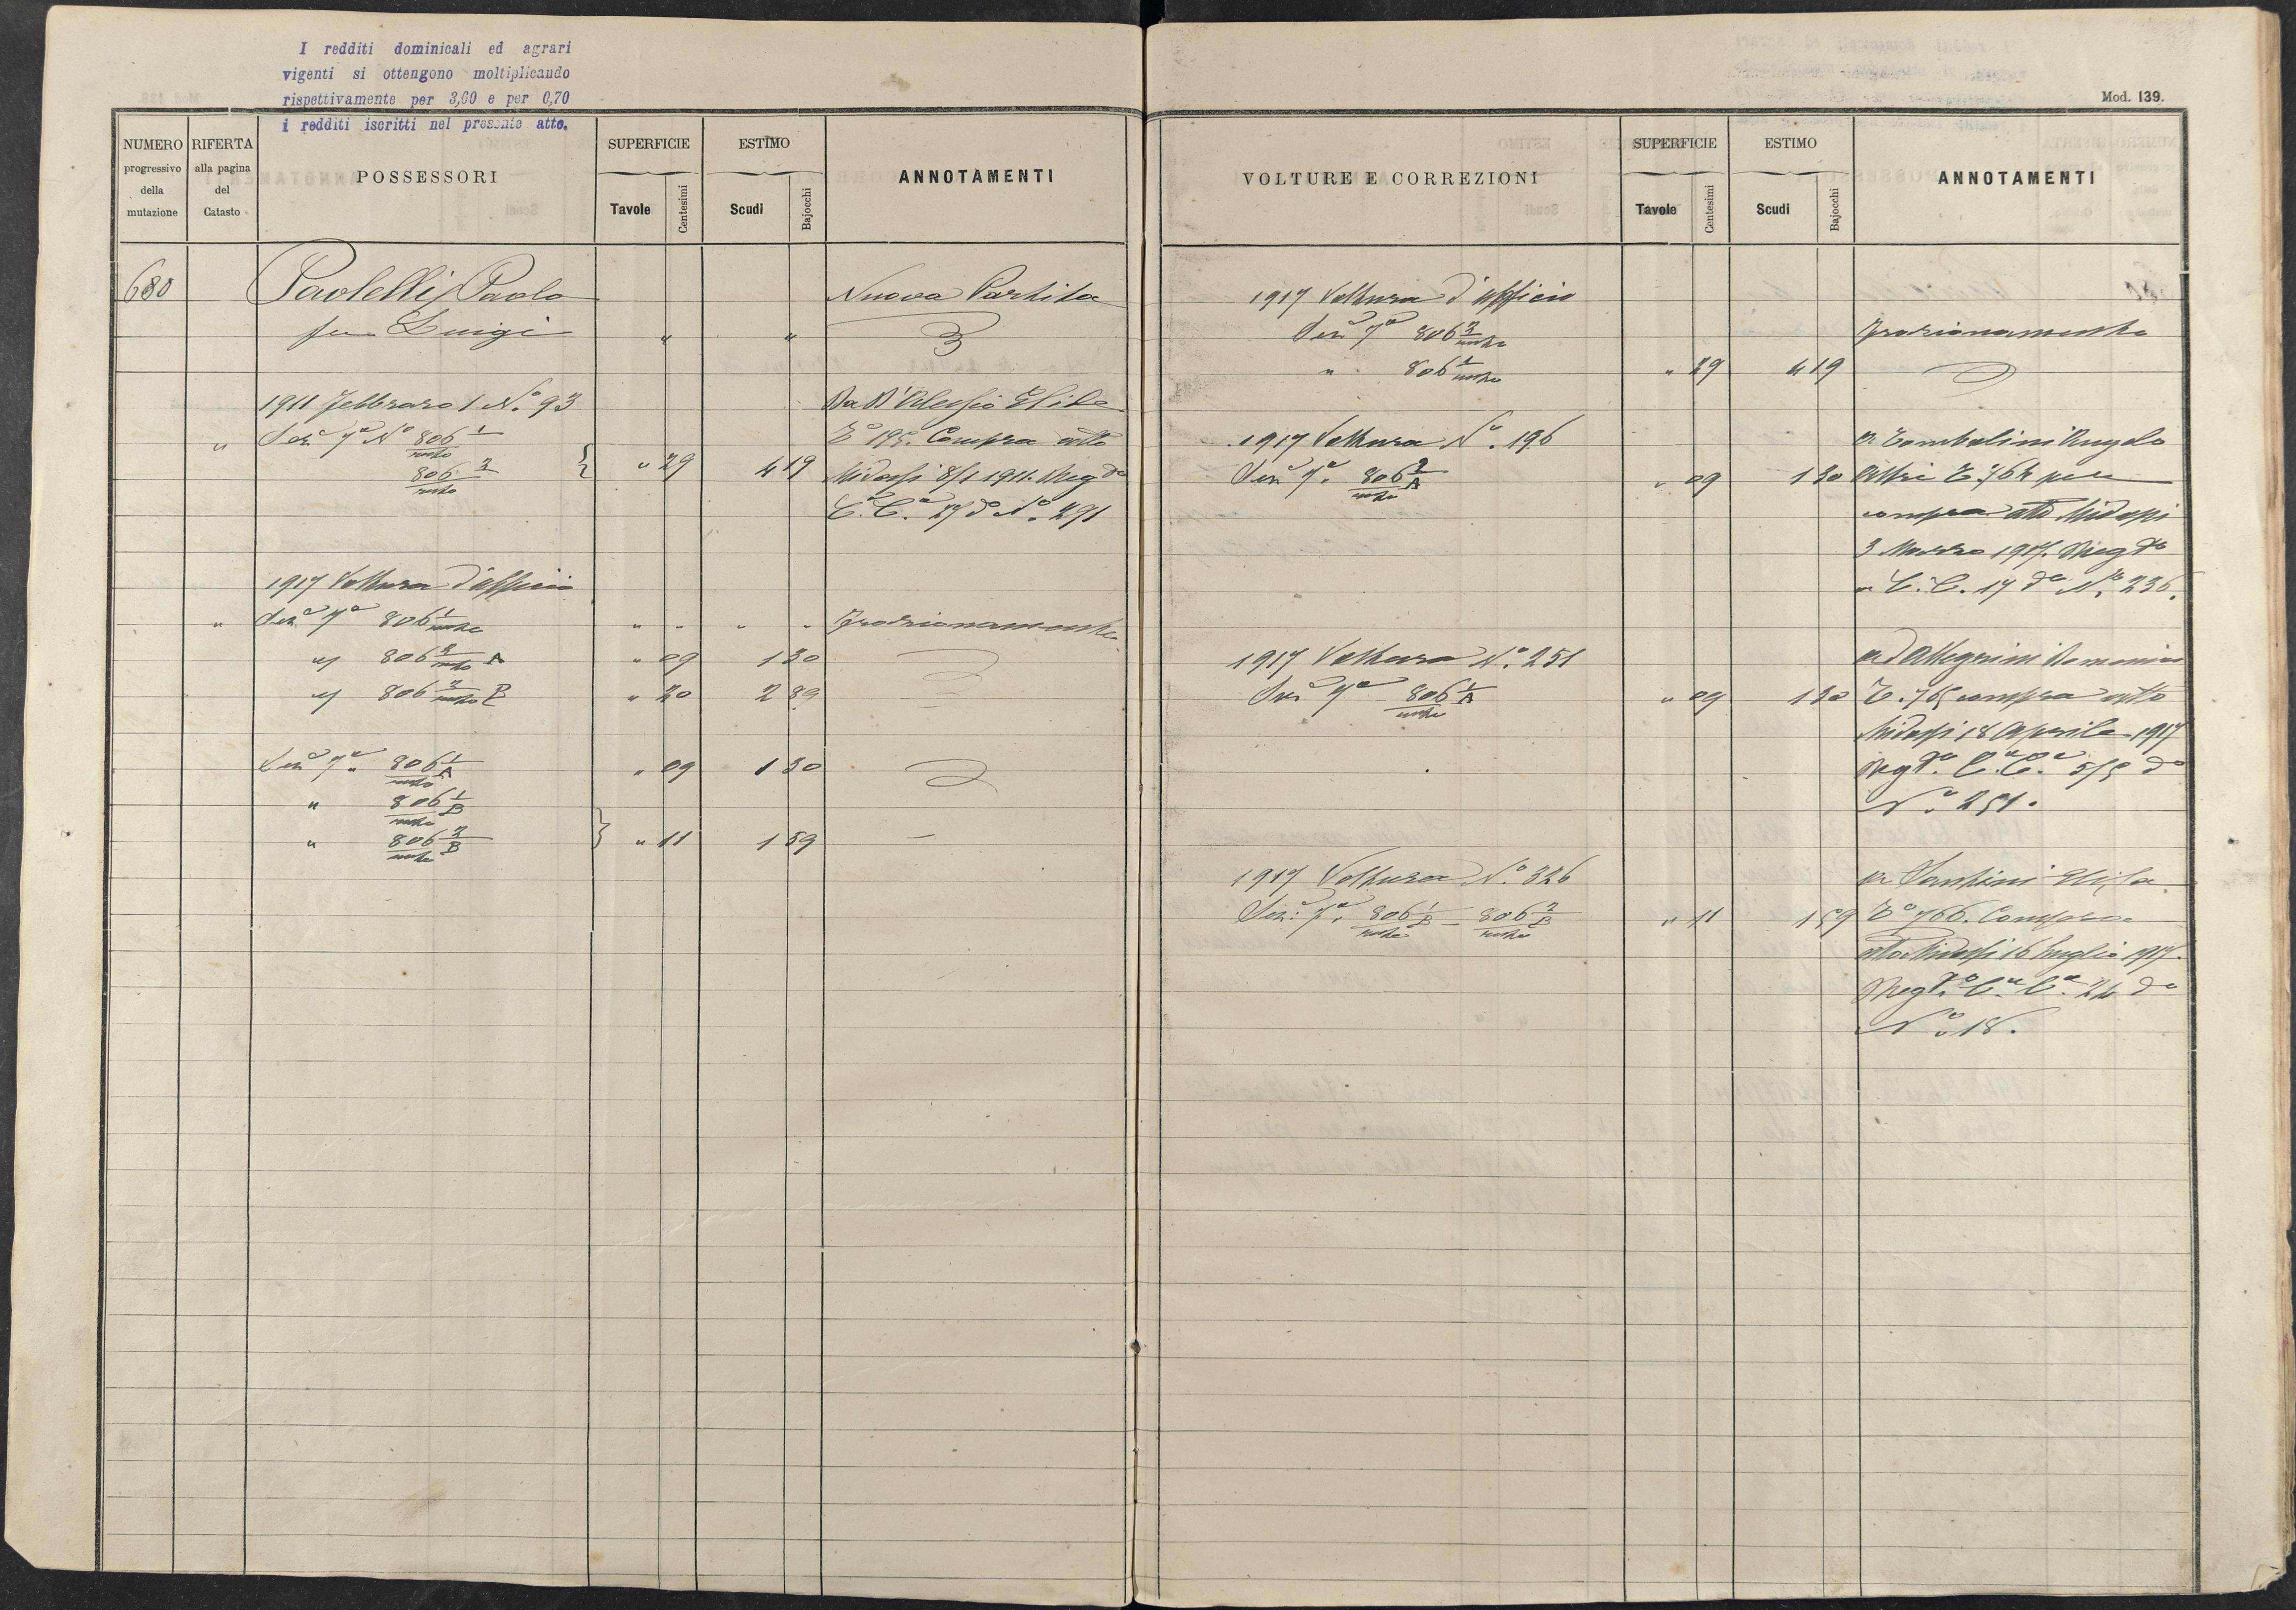 I redditi dominicali ed agrari
vigenti si ottengono moltiplicando
rispettivamente per 3,60 e per 0,70
i redditi iscritti nel presente atto.
NUMERO
progressivo
della
mutazione
RIFERTA
alla pagina
del
Catasto
POSSESSORI
SUPERFICIE
Tavole
Centesimi
ESTIMO
Scudi
Bajocchi
ANNOTAMENTI
680 Paolelli Paolo Nuova Partita
fu Luigi " "
1911 Febbraro 1 N.º 93 Da D'Alessio Elide
" Sez.e 7ª Nº 806 1/resto Tº 195. Compra atto
806 2/resto " 29 4 19 Midossi 8/1 1911. Reg.to
C.C. 27 do Nº 291
1917 Voltura d'ufficio
" Sez.e 7ª 806 1/resto " " " " Frazionamento
" 806 2/resto A " 09 1 30
" 806 2/resto B " 20 2 89
Sez.e 7ª 806 1/A resto " 09 1 30
" 806 1/B resto
" 806 2/B resto " 11 1 59 —
Mod. 139.
VOLTURE E CORREZIONI
SUPERFICIE
Tavole
Centesimi
ESTIMO
Scudi
Bajocchi
ANNOTAMENTI
1917 Voltura d'ufficio
Sez.e 7ª 806 2/resto Frazionamento
" 806 1/resto " 29 4 19
1917 Voltura Nº. 196 a Tombolini Angelo
Sez.e 7ª. 806 2/A resto " 09 1 30 altri T. 764 per
compra atto Midossi
3 Marzo 1917. Reg.to
a C.C. 17 do Nº. 236.
1917 Voltura Nº. 251 ad Allegrini Domenico
Sez.e 7ª 806 1/A resto " 09 1 30 T. 765 compra atto
Midossi 18 Aprile 1917
Reg.to C.C. 5/5 do
Nº 251.
1917 Voltura Nº. 326 a Santini Elisa
Sez.e 7ª. 806 1/B resto – 806 2/B resto " 11 1 59 Tº 766. Compra
atto Midossi 16 Luglio 1917.
Reg.to C.C. 24 do
Nº 18.